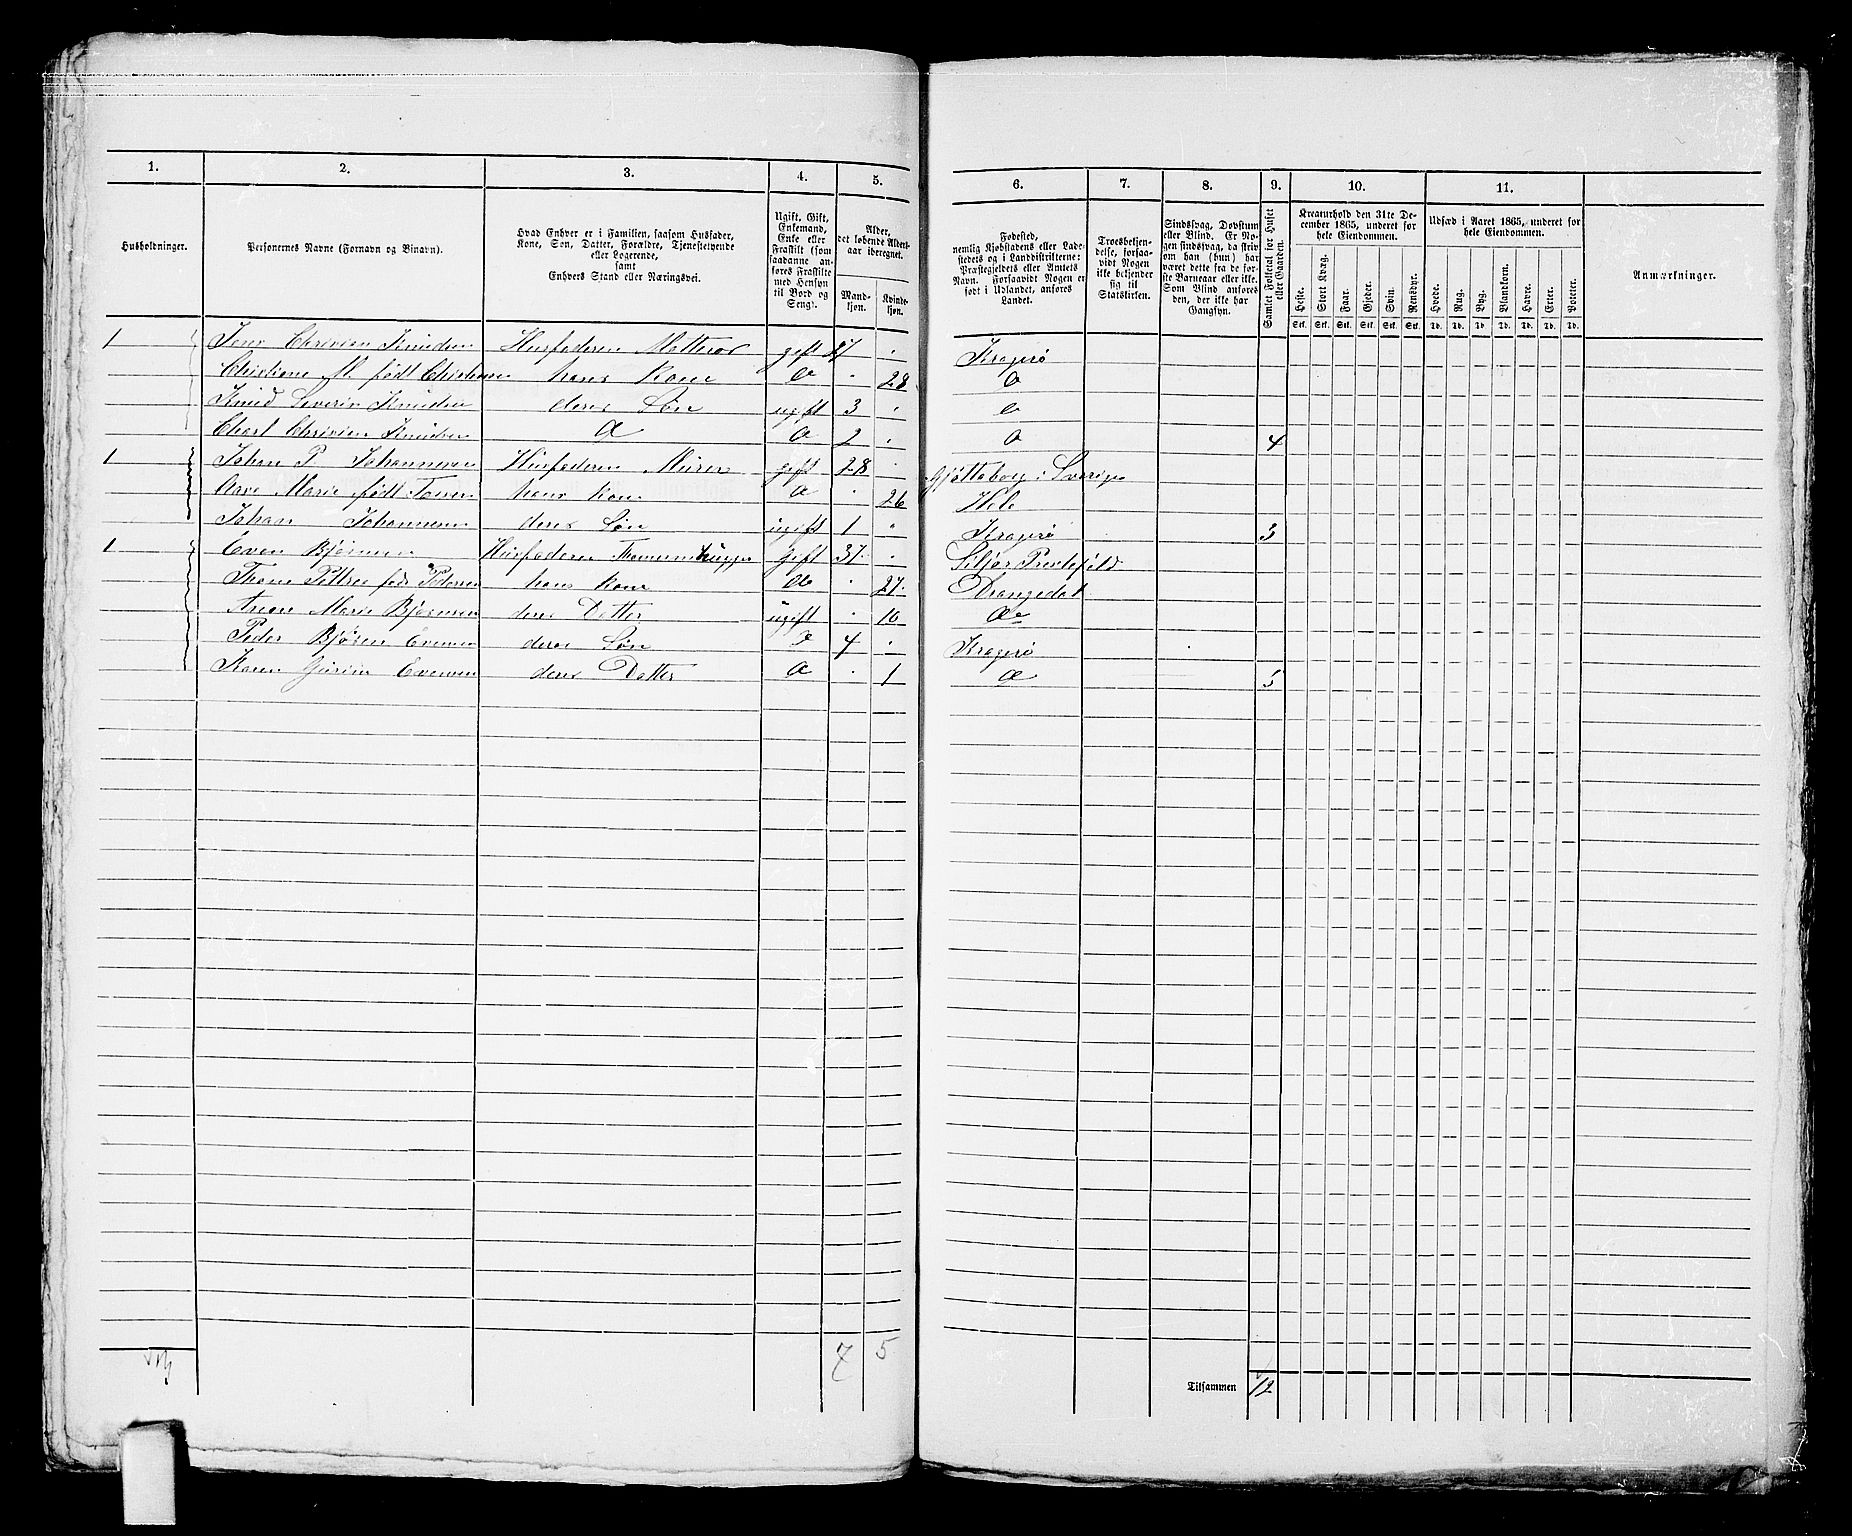 1. 2. 3. 4. 5. 6. 7. 8. 9. 10. 11.
Husholdninger.
Personernes Navne (Fornavn og Binavn).
Hvad Enhver er i Familien, saasom Husfader, Kone, Søn, Datter, Forældre, Tjenestetyende eller Logerende, samt Enhvers Stand eller Næringsvei.
Ugift, Gift, Enkemand, Enke eller Fraskilt (som saadanne anføres Fraskilte med Hensyn til Bord og Seng).
Alder, det løbende Aldersaar iberegnet.
Mandkjøn. Kvindekjøn.
Fødested, nemlig Kjøbstadens eller Ladestedets og i Landdistrikterne: Præstegjeldets eller Amtets Navn. Forsaavidt Nogen er født i Udlandet, anføres Landet.
Troesbekjendelse, forsaavidt Nogen ikke bekjender sig til Statskirken.
Sindssvag, Døvstum eller Blind. Er Nogen sindssvag, da skriv om han (hun) har været dette fra de første Barneaar eller ikke. Som Blind anføres den, der ikke har Gangsyn.
Samlet Folketal for Huset eller Gaarden.
Kreaturhold den 31te December 1865, underet for hele Eiendommen.
Heste. Stort Kvæg. Faar. Gjeder. Svin. Rensdyr.
Stk. Stk. Stk. Stk. Stk. Stk.
Udsæd i Aaret 1865, underet for hele Eiendommen.
Hvede. Rug. Byg. Blandkorn. Havre. Erter. Poteter.
Td. Td. Td. Td. Td. Td. Td.
Anmærkninger.
1 Jens Christen Knudsen Husfaderen Matteros gift 27 Kragerø
Christiane M. født Christensen hans Kone 28
Knud Severin Knudsen deres Søn ugift 3
Charl Christen Knudsen 2 4
1 Johan P Johannesen Husfaderen Murer gift 28 Gjøtteborg i Sverige
Marie født hans Kone 26
Johan Johannesen deres Søn ugift 1 Kragerø 3
1 Even Bjørnsen Husfaderen gift 37 Siljør Prestejeld
Petrea født Pedersen hans Kone do 27 Drangedal
Marie Bjørnsen deres Datter ugift 10
Peder Bjørn Evensen deres Søn 4 Kragerø
Karen Gurine Evensen deres Datter 1 5
7 5
Tilsammen 12